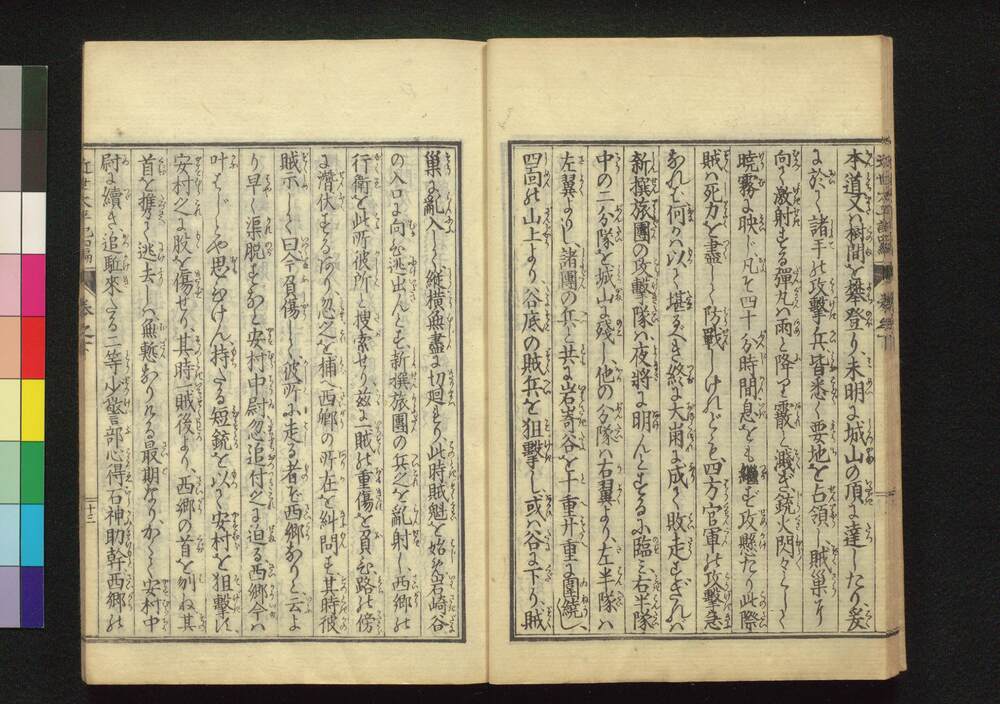 本道又ハ樹間を攀登り未明に城山の頂に達したり爰
に於て諸手の攻撃兵皆悉く要地を占領し賊巣に
向て激射する彈丸ハ雨と降り霰と濺ぎ銃火閃々として
曉霧に映じ凡そ四十分時間息をも繼ず攻懸たり此際
賊ハ死力を盡して防戰しけれども四方官軍の攻撃急
なれバ何かハ以て堪るべき終に大崩に成て敗走すされバ
新撰旅團の攻撃隊ハ夜將に明んとするに臨ミ右半隊
中の二分隊を城山に殘し他の分隊ハ右翼より左半隊ハ
左翼よりし諸團の兵と共に岩崎谷を十重廿重に圍繞し
四面の山上より谷底の賊兵を狙撃し或ハ谷に下り賊
巣に亂入して縱横無盡に切廻まり此時賊魁を始め岩崎谷
の入口に向ひ逃出んとせし新撰旅團の兵之を亂射し西郷の
行衛を此所彼所と捜索せり茲に一賊の重傷を負ひ路の傍
に潛伏するあり忽之を捕へ西郷の所在を糾問す其時彼
賊示して曰今負傷して彼所に走る者ぞ西郷なりと云よ
り早く渠脱すなと安村中尉忽追付之に迫る西郷今ハ
叶ハじとや思ひけん持たる短銃を以て安村を狙撃す
安村之に股を傷せり其時一賊後より西郷の首を刎ね其
首を携て逃去しハ無慙なりける最期なりかくて安村中
尉に續き追駈來たる二等少警部心得石神助幹西郷の
近世太平記二編
卷之下
二十三